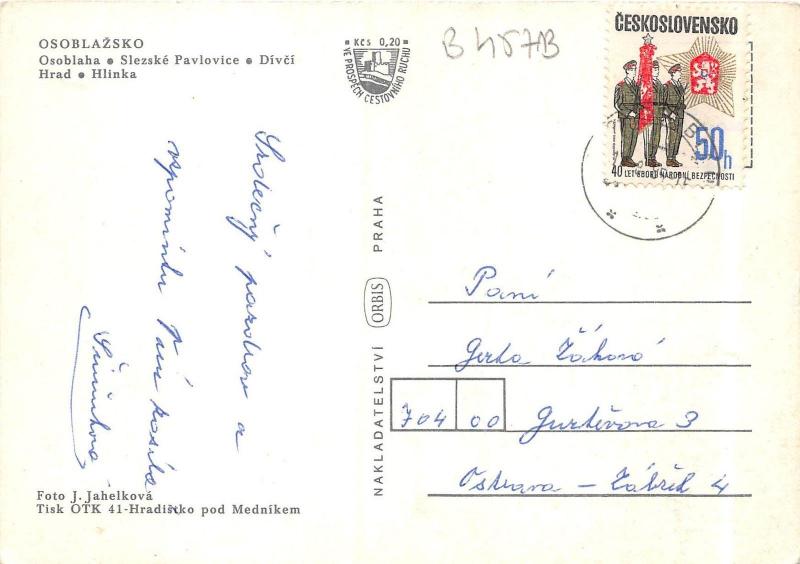 OSOBLAŽSKO
Osoblaha • Slezské Pavlovice • Dívčí
Hrad • Hlinka
Kčs 0,20
VE PROSPĚCH CESTOVNÍHO RUCHU
B 457B
ČESKOSLOVENSKO
50h
40 LET SBORU NÁRODNÍ BEZPEČNOSTI
Srdečný pozdrav a
vzpomínku Vám posílá
NAKLADATELSTVÍ ORBIS PRAHA
Paní
Gerta Žáková
704 00 Gurťěvova 3
Ostrava - Zábřeh 4
Foto J. Jahelková
Tisk OTK 41-Hradištko pod Medníkem